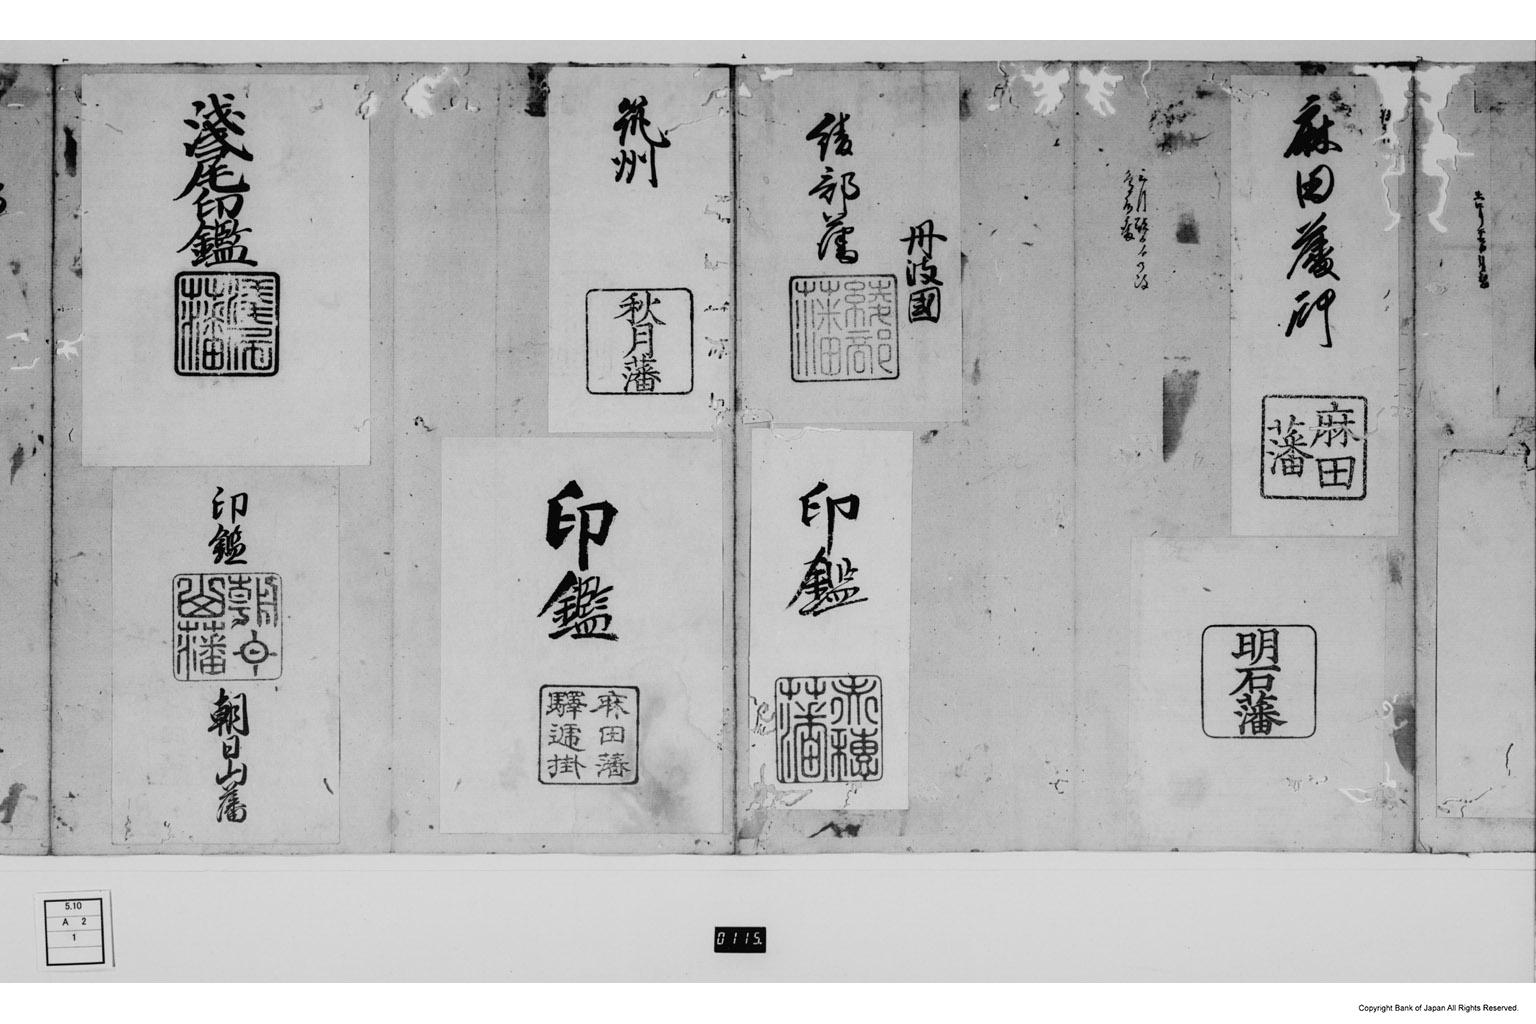 麻田藩印
麻田
藩
明石藩
丹波國
綾部藩
綾部
藩
印鑑
赤穂
藩
筑州
秋月藩
印鑑
麻田藩
驛逓掛
淺尾印鑑
淺尾
藩
印鑑
朝日
山藩
朝日山藩
5.10
A 2
1
0115.
Copyright Bank of Japan All Rights Reserved.